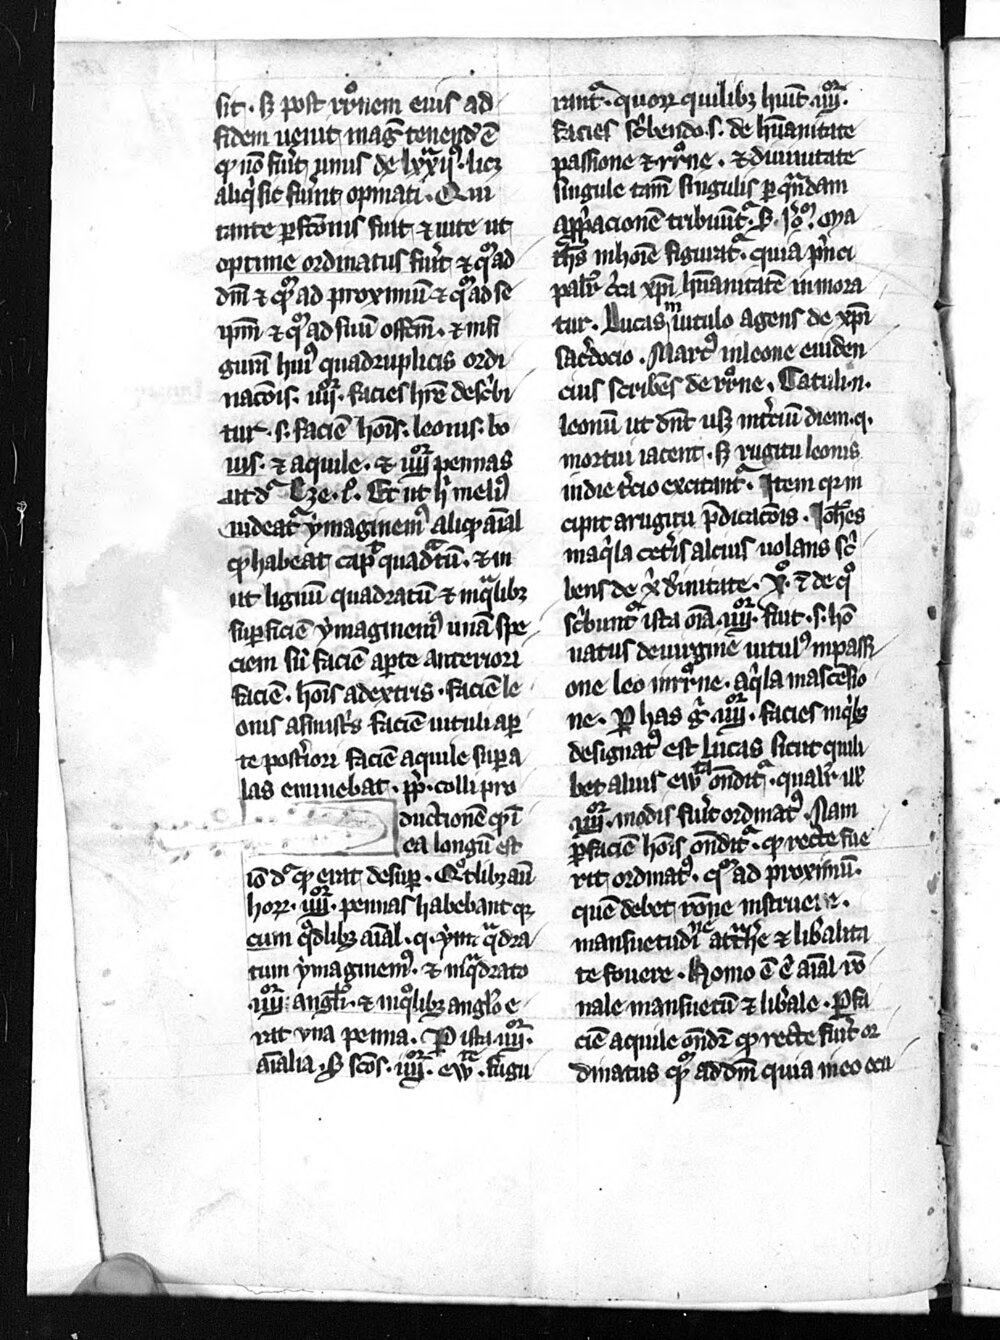 sit. s̄ post rr̄onem eius ad
fidem uenit, mag̃ tenend᷒ ē
qp nō fuit̃ unus de lxxij. licꝫ
aliq̃ sic fuer̄nt opinati. Qui
tante ꝑfc̄onis fuit ⁊ uite ut
optime ordinatus fuit̃ ⁊ qͦ ad
dm̄ ⁊ qͦ ad proximū ⁊ qͦ ad se
ip̄m ⁊ qͦ ad suū offm̄. ⁊ in fi
guram̄ huiꝰ quadruplicis ordi
nac̄ois. iiijor. facies hr̄e desc̄bi
tur. s. faciē hoīs. leonis. bo
uis. ⁊ aquile. ⁊ iiijor pennas
ut dr̃ Eze. i. Et ut h̄ meliꝰ
uideat̃ ymaginemꝰ aliqp aīal
qp habeat capͣ quadͣtū. ⁊ in
ut lignū quadratū ⁊ in qͣlibꝫ
suꝑficiē ymaginemꝰ unā spe
ciem sīl faciē a ꝑte anteriori
faciē. hoīs a dextris. faciē le
onis a sinist̃s faciē uituli a ꝑ
te post̃iori faciē aquile suꝑ a
las eminebat. ꝓꝑ. colli pro
ductionē qp ī
ea longū est
iō dr̃ qp erat desuꝑ. Qͦtlibꝫ aū
horꝝ. iiijor. pennas habebant qꝫ
cum qͦdlibꝫ aīal. q. ym̄ qͣdra
tum ymaginemꝰ. ⁊ in qͣdrato
.iiijor. angl̄i. ⁊ in qͦlibꝫ angl̄o e
rat vna penna. Ꝑ ista. iiijor.
aīalia. s̄ scōs. iiijor. ew̄. figu
rant̃. quorꝝ quilibꝫ hūit. iiijor.
facies sc̄bendo. s. de hūanitate
passione ⁊ rr̄one. ⁊ diuinitate
singule tam̄ singulis ꝑ qͣndam
app̄acionē tribuūt̃. s̄. Ieͦ. Ma
th̄s in hoīe figurat̃. quia p̄nci
palr̃ c̄ca xp̄i hūanitatē inmora
tur. Lucas in uitulo agens de xp̄i
sac̄docio. Marcꝰ in leone euiden
cius scribēs de rr̄one. Catuli. n.
leonū ut dn̄t usqꝫ in t̃ciū diem. q.
mortui iacent. s̄ rugitu leonis
in die t̃cio excitant̃. Item qꝛ in
cipit a rugitu p̄dicac̄ois. Ioh̄es
in aqͥla cet̃is alcius uolans sc̄
bens de x̄ diuinitate. xp̄. ē de qͦ
sc̄bunt̃ ista oīa. iiijor. fuit. s. hō
natus de uirgine uitulꝰ in pass
one leo in rr̄one. aqͥla in ascēsio
ne. Ꝑ has g̊. iiijor. facies in qͥbꝫ
designatꝰ est Lucas sicut quili
bet alius ew̄ ōndit̃. qualr̃ in
iiijor. modis fuit̃ ordinatꝰ. Nam
ꝑ faciē hoīs ōndit̃. qp recte fue
rit ordinatꝰ. qͦ ad proximū.
quē debet rōne instruere.
mansuetudīne att̃h̄e ⁊ lib̄alita
te fouere. Homo ē ē aīal rō
nale mansuetū ⁊ lib̄ale. Ꝑ fa
ciē aquile ōndr̃ qp recte fuit̃ or
dinatus qͦ ad dm̄ quia in eo ocu